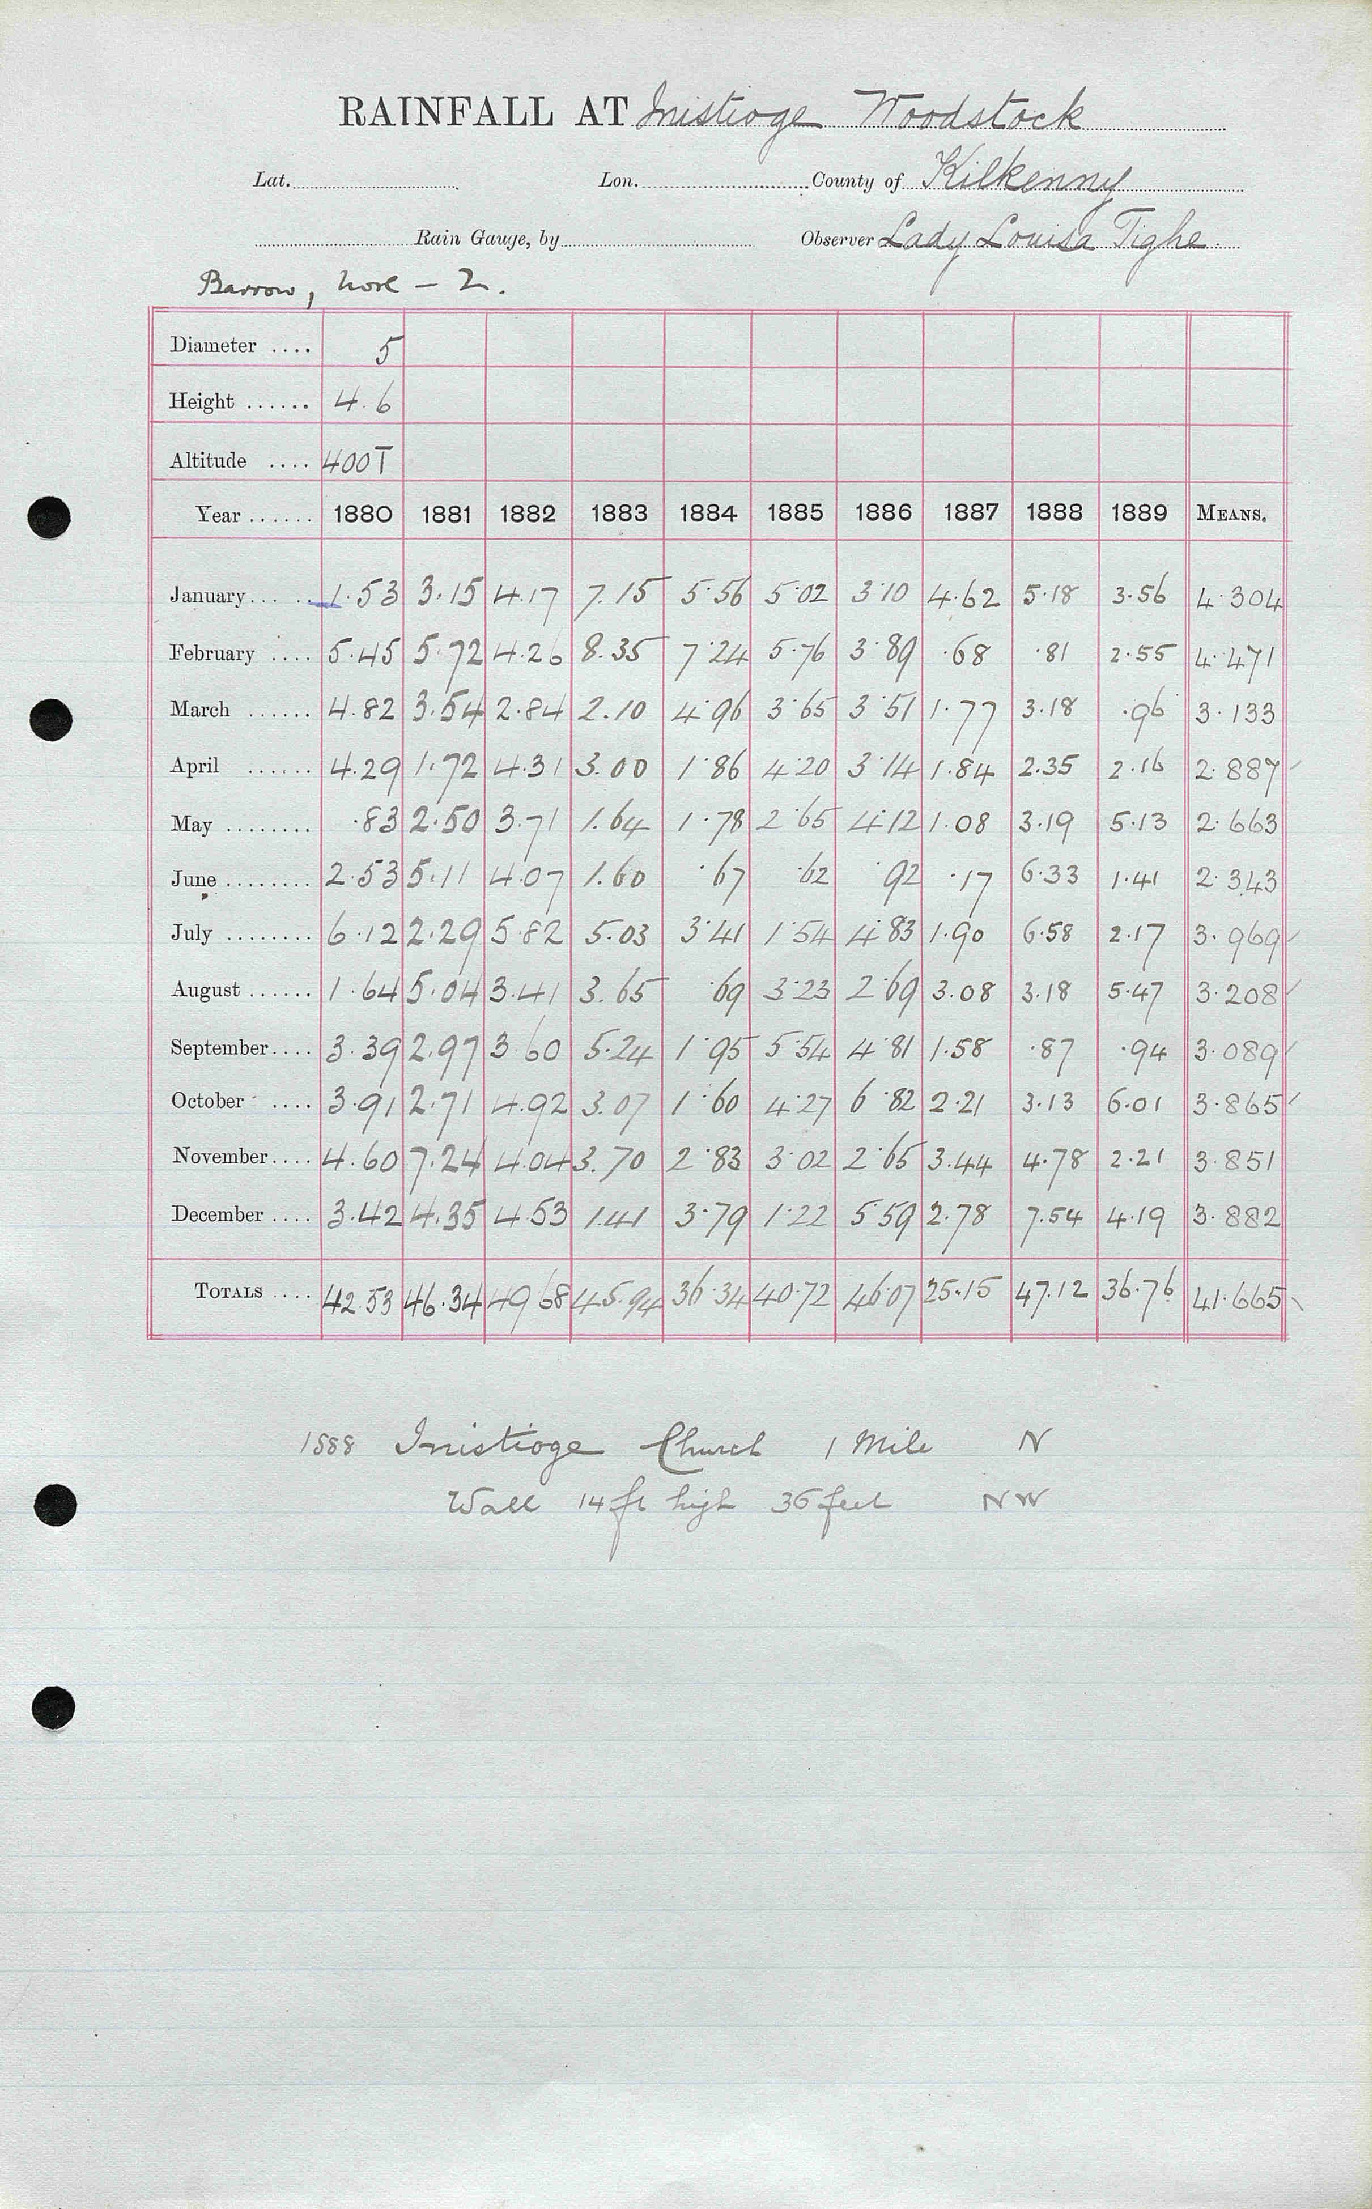 RAINFALL AT Inistioge Woodstock
Lat. Lon. County of Kilkenny
Rain Gauge, by Observer Lady Louisa Tighe
Barrow, Nore - 2.
Diameter .... 5
Height ...... 4.6
Altitude .... 400T
Year ...... 1880 1881 1882 1883 1884 1885 1886 1887 1888 1889 MEANS.
January.... 1.53 3.15 4.17 7.15 5.56 5.02 3.10 4.62 5.18 3.56 4.304
February .... 5.45 5.72 4.26 8.35 7.24 5.76 3.89 .68 .81 2.55 4.471
March ...... 4.82 3.54 2.84 2.10 4.96 3.65 3.51 1.77 3.18 .96 3.133
April ...... 4.29 1.72 4.31 3.00 1.86 4.20 3.14 1.84 2.35 2.16 2.887
May ........ .83 2.50 3.71 1.64 1.78 2.65 4.12 1.08 3.19 5.13 2.663
June ........ 2.53 5.11 4.07 1.60 .67 .62 92 .17 6.33 1.41 2.343
July ........ 6.12 2.29 5.82 5.03 3.41 1.54 4.83 1.90 6.58 2.17 3.969
August ...... 1.64 5.04 3.41 3.65 .69 3.23 2.69 3.08 3.18 5.47 3.208
September.... 3.39 2.97 3.60 5.24 1.95 5.54 4.81 1.58 .87 .94 3.089
October .... 3.91 2.71 4.92 3.07 1.60 4.27 6.82 2.21 3.13 6.01 3.865
November.... 4.60 7.24 4.04 3.70 2.83 3.02 2.65 3.44 4.78 2.21 3.851
December .... 3.42 4.35 4.53 1.41 3.79 1.22 5.59 2.78 7.54 4.19 3.882
TOTALS .... 42.53 46.34 49.68 45.94 36.34 40.72 46.07 25.15 47.12 36.76 41.665
1888 Inistioge Church 1 Mile N
Wall 14 ft high 36 feet NW